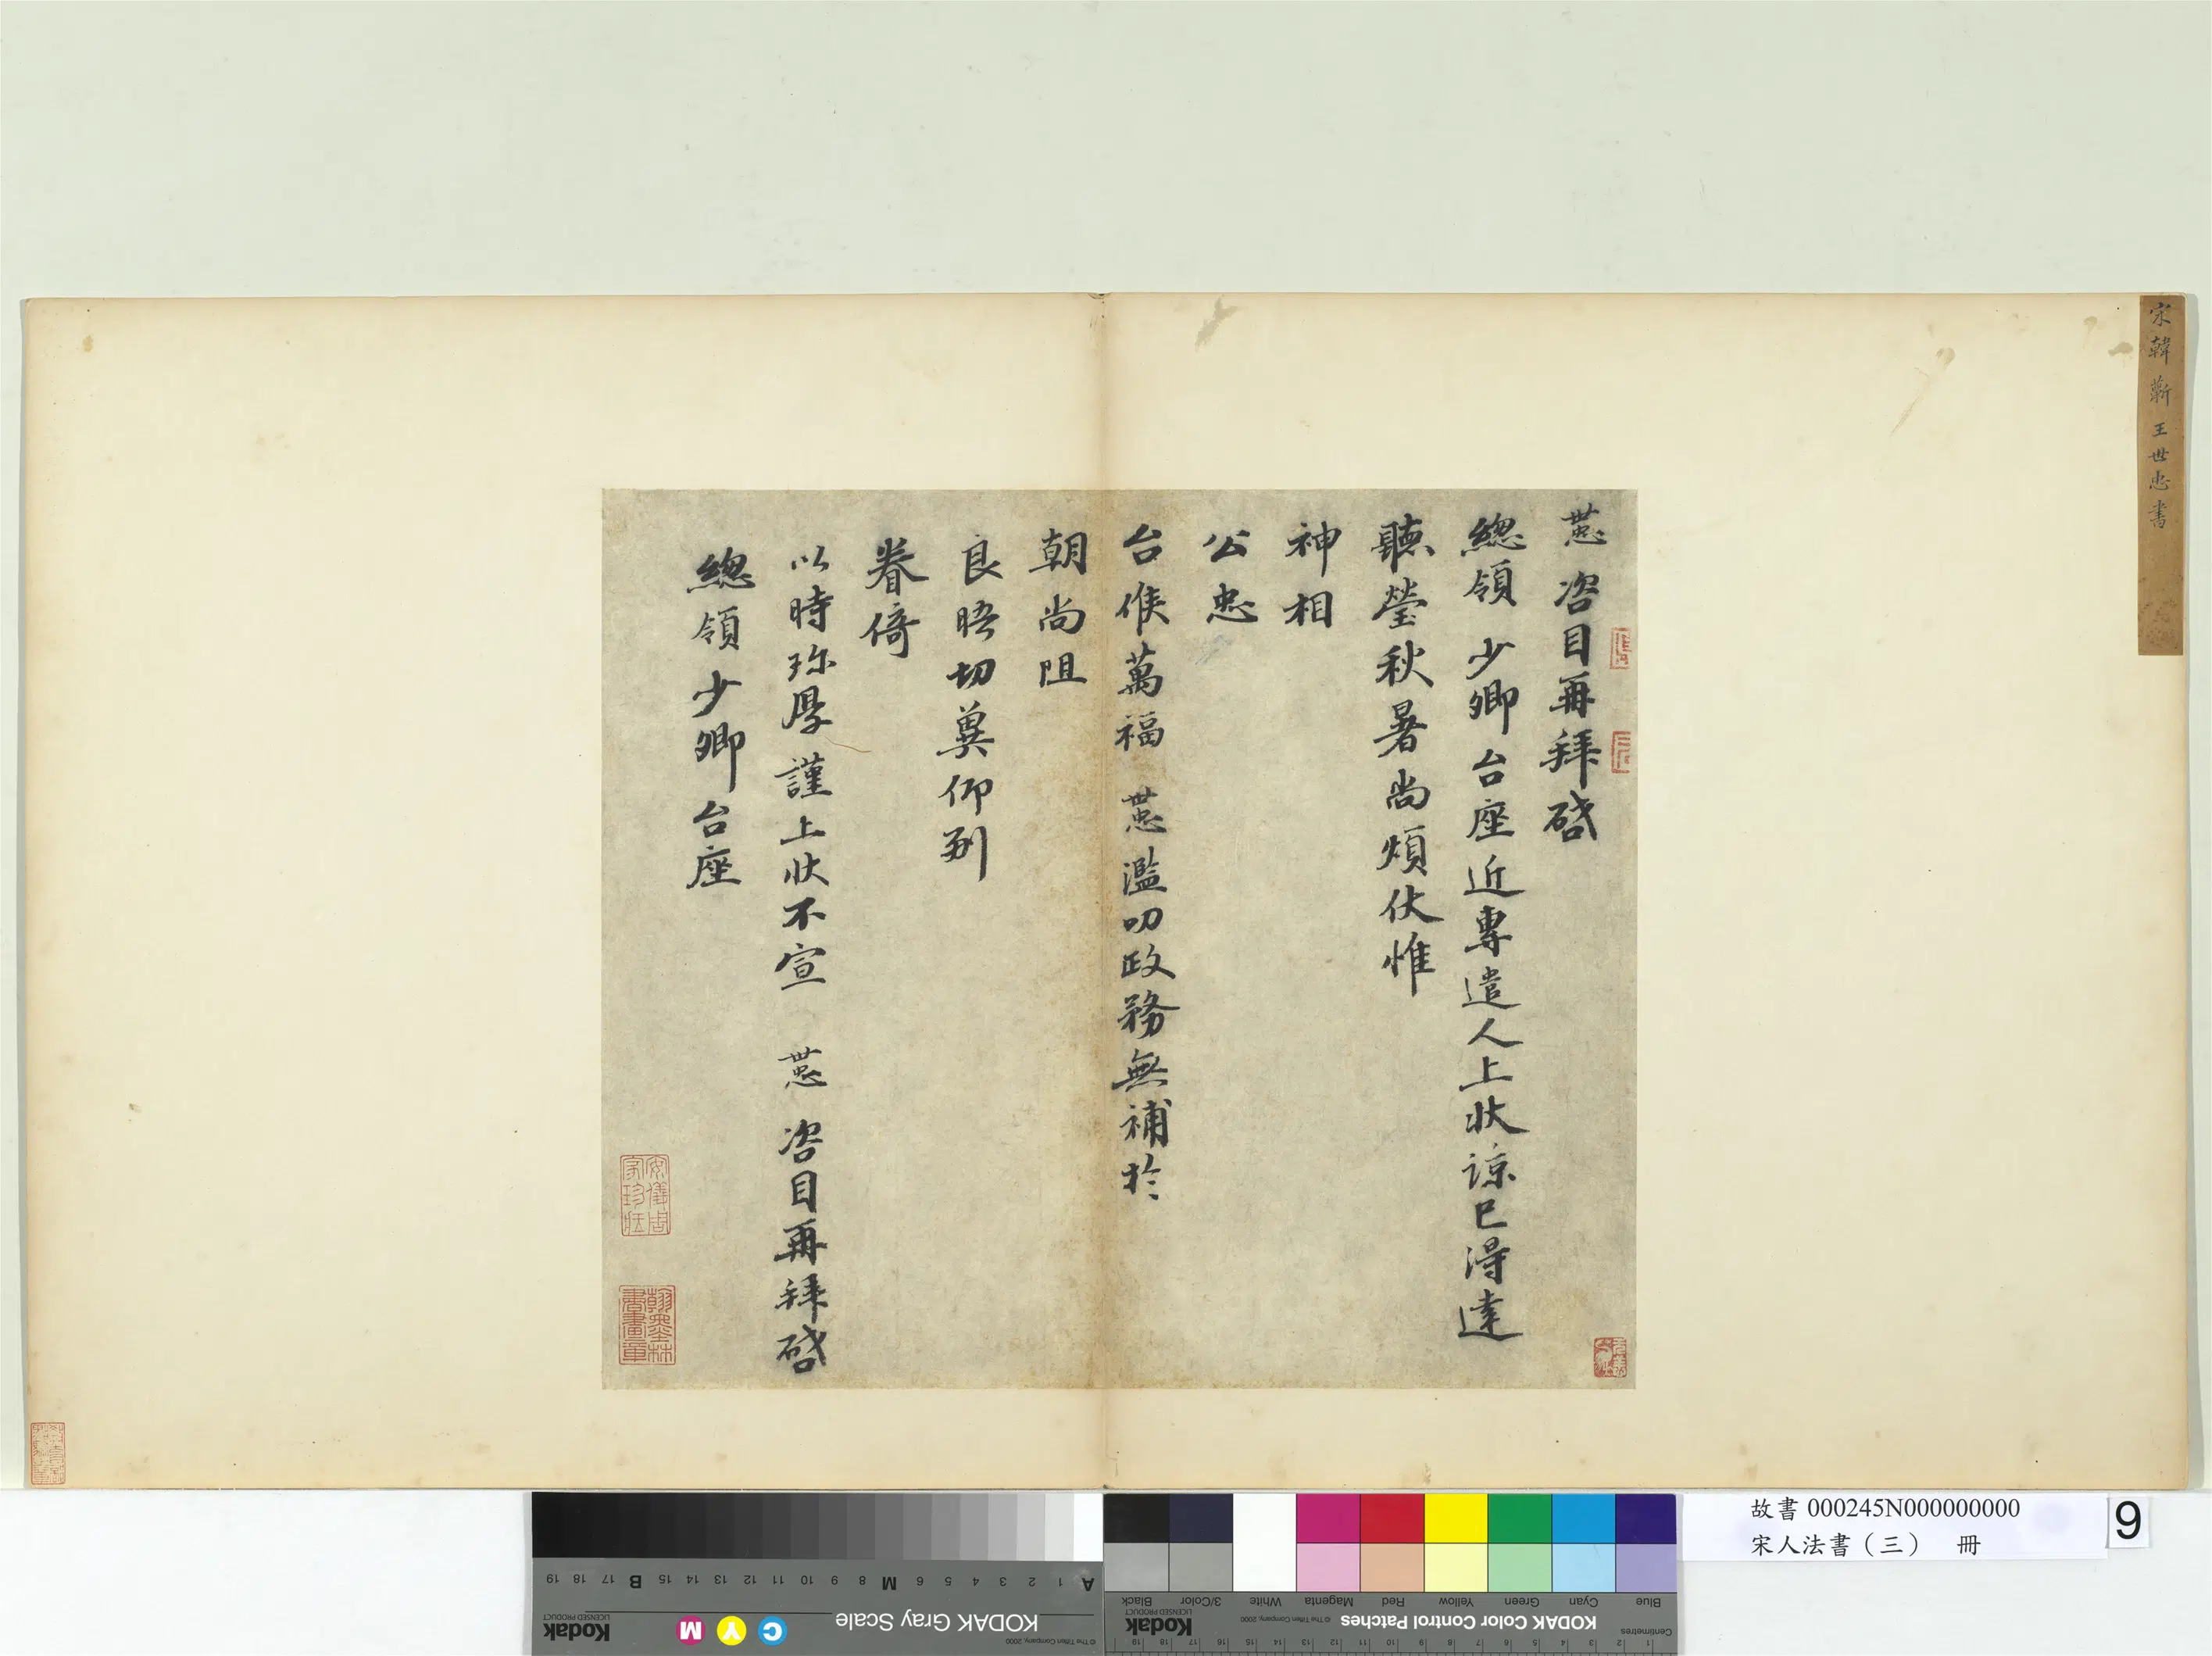 宋韓蘄王世忠書
世忠咨目再拜啓
總領少卿台座近專遣人上狀諒已得達
聽瑩秋暑尚煩伏惟
神相
公忠
台候萬福世忠濫叨政務無補於
朝尚阻
良晤切冀仰副
眷倚
以時珎厚謹上狀不宣 世忠咨目再拜啓
總領少卿台座
安儀周家珍藏
翰墨林書畫章
故書 000245N000000000
宋人法書（三） 冊
9
KODAK Gray Scale
© The Tiffen Company, 2000
Kodak
LICENSED PRODUCT
C Y M
A 1 2 3 4 5 6 M 8 9 10 11 12 13 14 15 B 17 18 19
KODAK Color Control Patches
© The Tiffen Company, 2000
Kodak
LICENSED PRODUCT
Blue Cyan Green Yellow Red Magenta White 3/Color Black
Centimetres